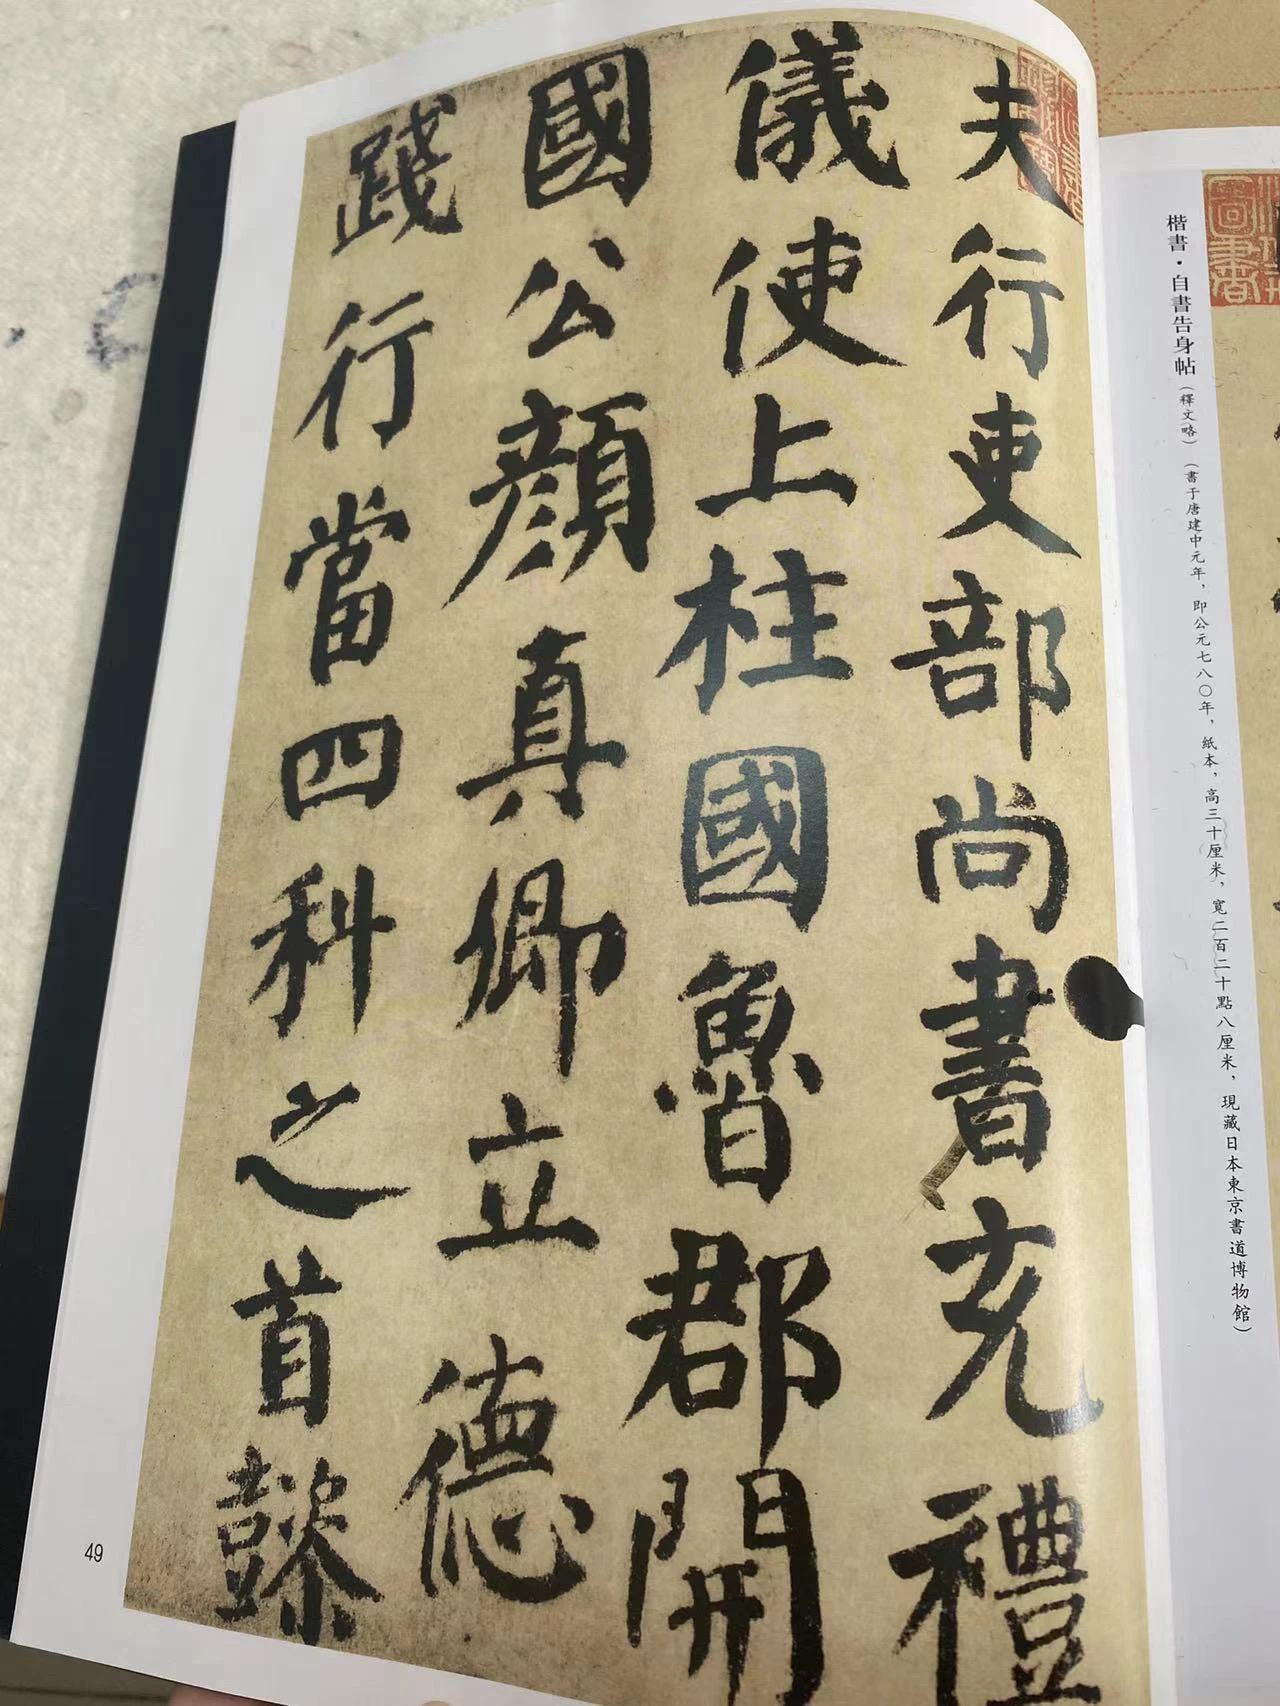 楷書·自書告身帖（釋文略）（書于唐建中元年，即公元七八〇年，紙本，高三十厘米，寬二百二十點八厘米，現藏日本東京書道博物館）
夫行吏部尚書充禮
儀使上柱國魯郡開
國公顏真卿立德
踐行當四科之首懿
49